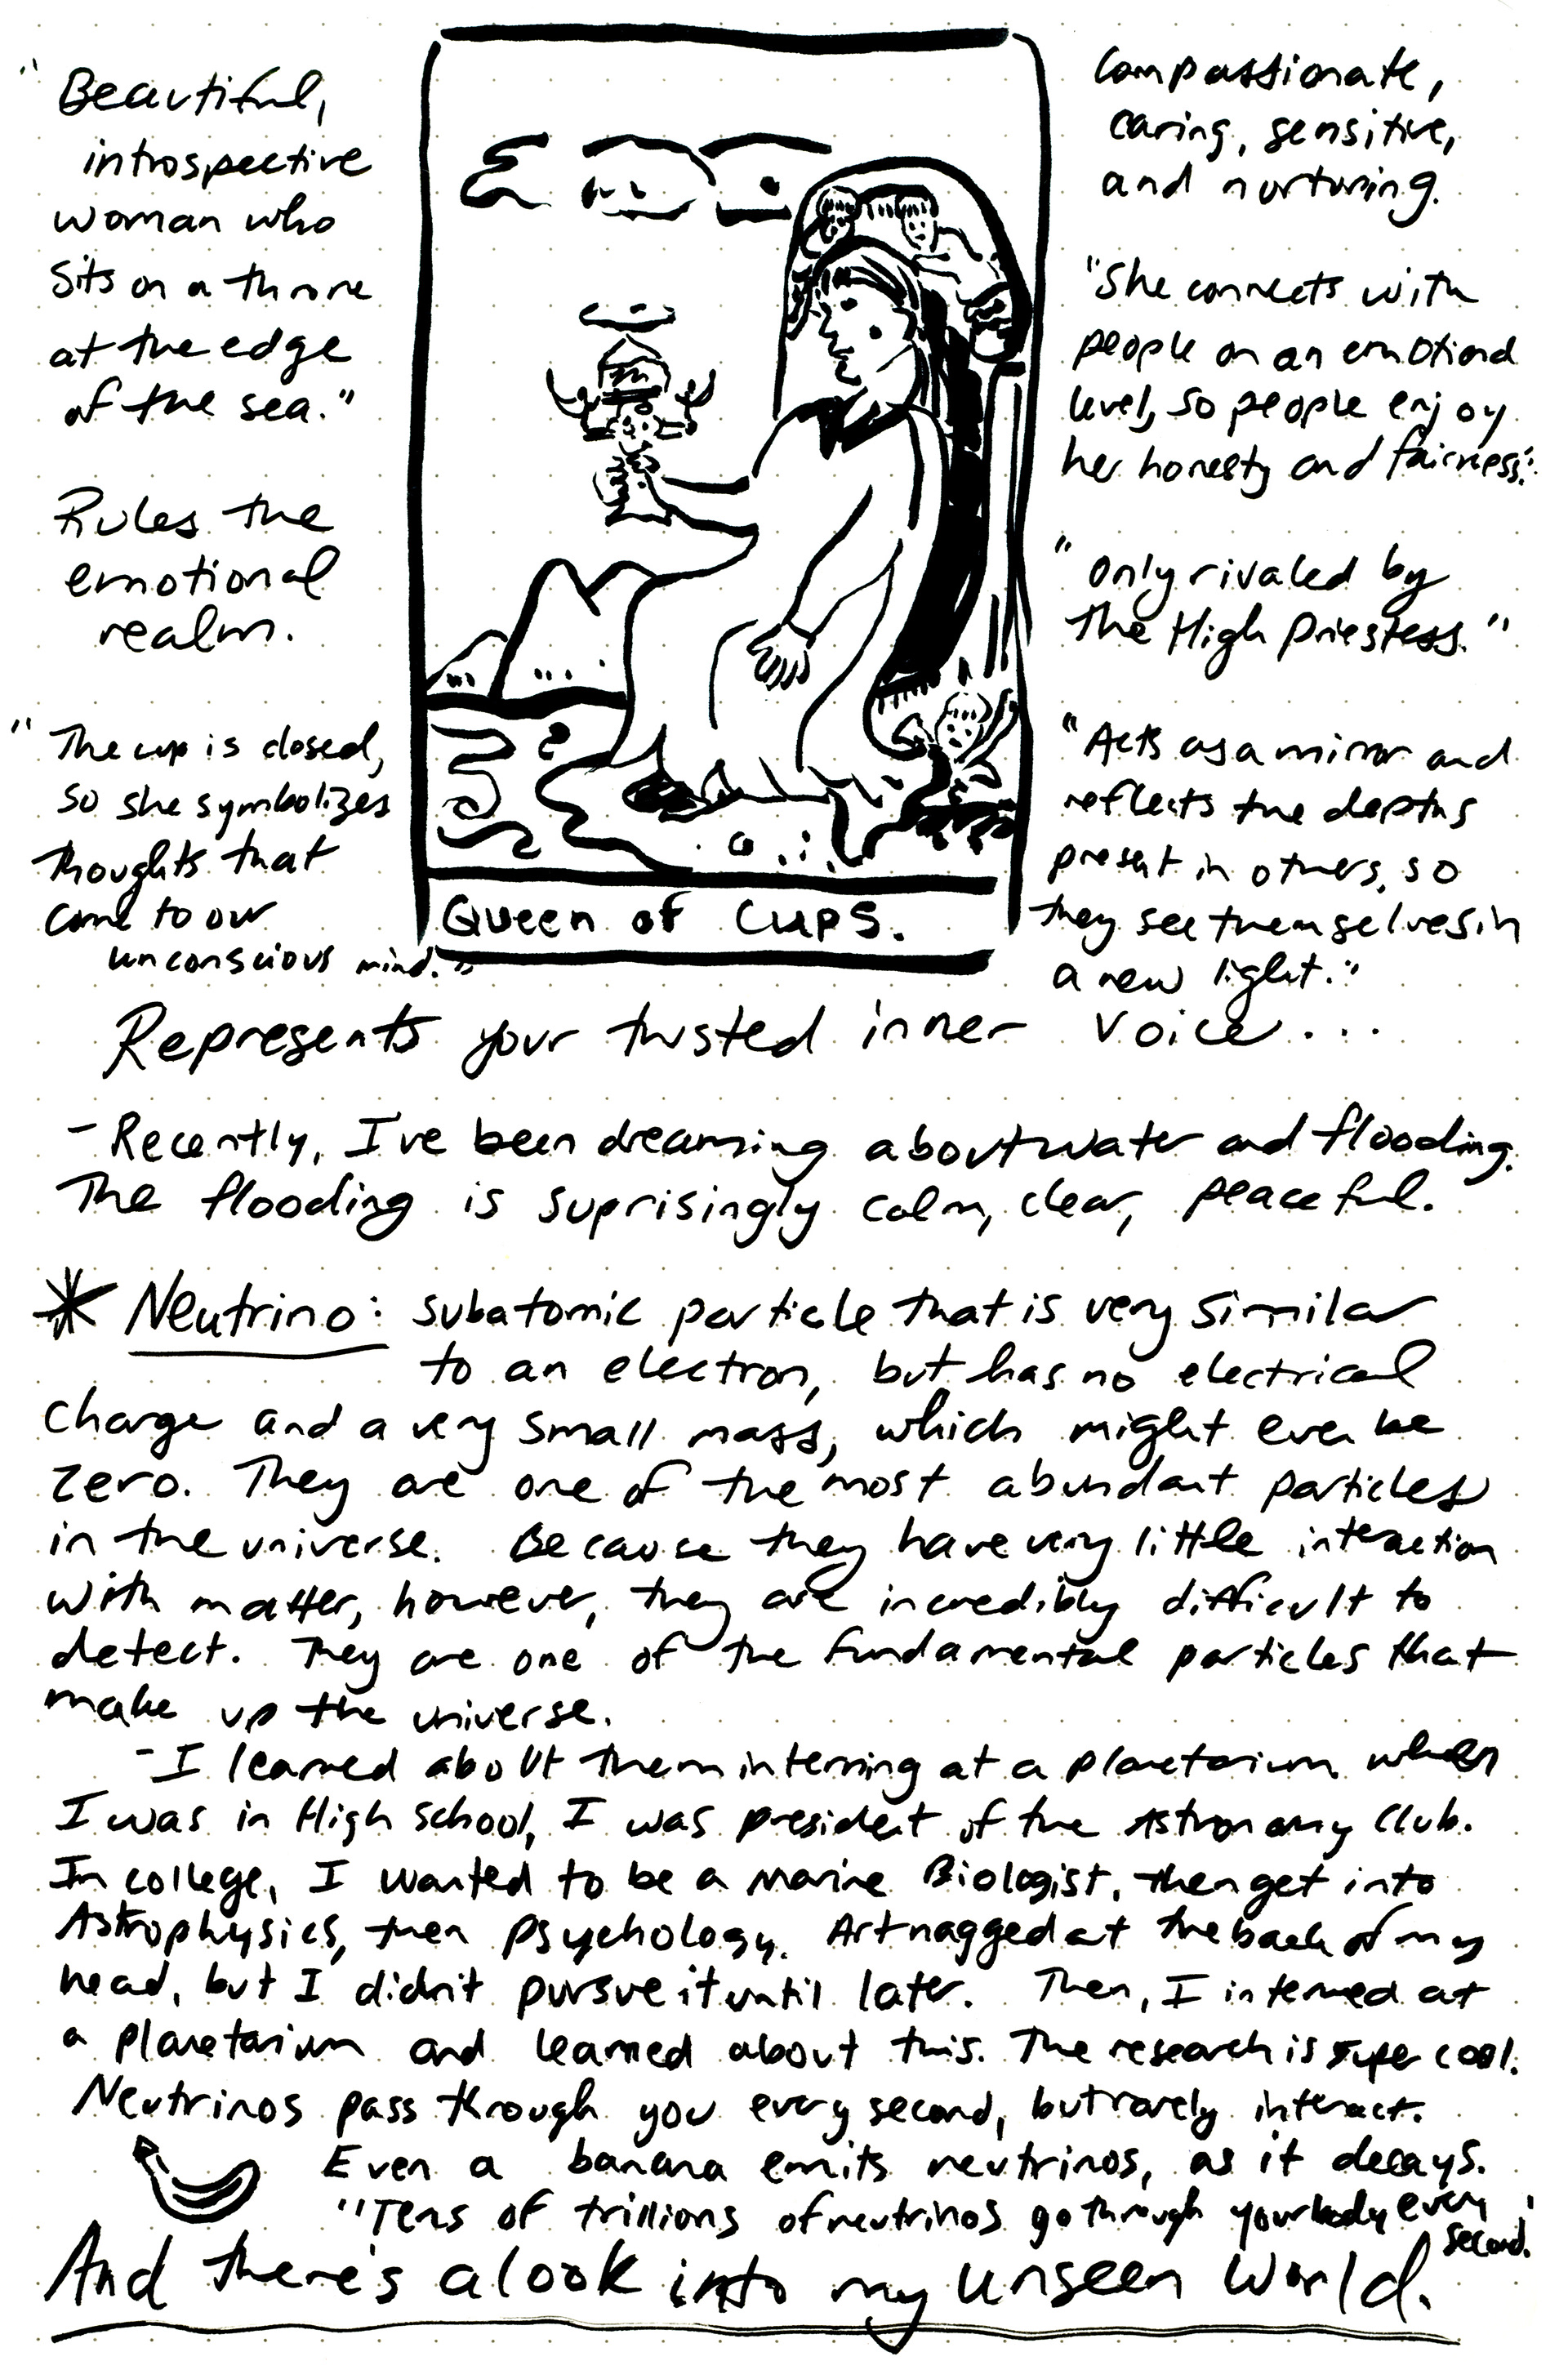 "Beautiful,
introspective
woman who
sits on a throne
at the edge
of the sea."
Rules the
emotional
realm.
"The cup is closed,
so she symbolizes
thoughts that
come to our
unconscious mind."
Queen of Cups.
Compassionate,
caring, sensitive,
and nurturing.
"She connects with
people on an emotional
level, so people enjoy
her honesty and fairness."
"Only rivaled by
the High Priestess."
"Acts as a mirror and
reflects the depths
present in others, so
they see themselves in
a new light."
Represents your trusted inner voice...
- Recently, I've been dreaming about water and flooding.
The flooding is suprisingly calm, clear, peaceful.
* Neutrino: subatomic particle that is very similar
to an electron, but has no electrical
charge and a very small mass, which might even be
zero. They are one of the most abundant particles
in the universe. Because they have very little interaction
with matter, however, they are incredibly difficult to
detect. They are one of the fundamental particles that
make up the universe.
- I learned about them interning at a planetarium when
I was in High School, I was president of the Astronomy Club.
In college, I wanted to be a Marine Biologist, then get into
Astrophysics, then Psychology. Art nagged at the back of my
head, but I didn't pursue it until later. Then, I interned at
a planetarium and learned about this. The research is super cool.
Neutrinos pass through you every second, but rarely interact.
Even a banana emits neutrinos, as it decays.
"Tens of trillions of neutrinos go through your body every
second."
And there's a look into my unseen world.